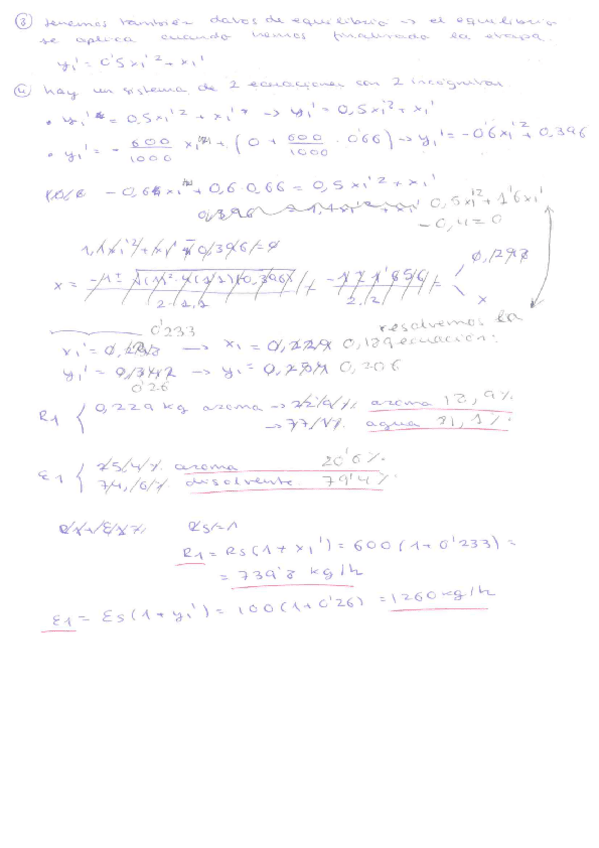 ③ tenemos también datos de equilibrio → el equilibrio
se aplica cuando hemos finalizado la etapa.
y₁' = 0'5x₁'² + x₁'
④ hay un sistema de 2 ecuaciones con 2 incógnitas
• y₁'* = 0,5x₁'² + x₁'* → y₁' = 0,5x₁'² + x₁'
• y₁' = - 600/1000 x₁' + (0 + 600/1000 · 0'66) → y₁' = -0'6x₁' + 0,396
-0,6x₁' + 0,6·0,66 = 0,5x₁'² + x₁'
0,5x₁'² + 1'6x₁'
-0,4 = 0
1,1x₁'² + x₁' - 0,396 = 0
0,293
x =
x
resolvemos la
ecuación:
0'233
x₁' = → x₁ = 0,229 0,189
y₁' = → y₁ = 0,206
0'26
R1 { 0,229 kg aroma → 22,9% aroma 18,9%
→ 77,1% agua 81,1%
E1 { 25,4% aroma 20'6%
74,6% disolvente 79'4%
R1 = Rs(1 + x₁') = 600(1 + 0'233) =
= 739'8 kg/h
E1 = Es(1 + y₁') = 100(1 + 0'26) = 1260 kg/h